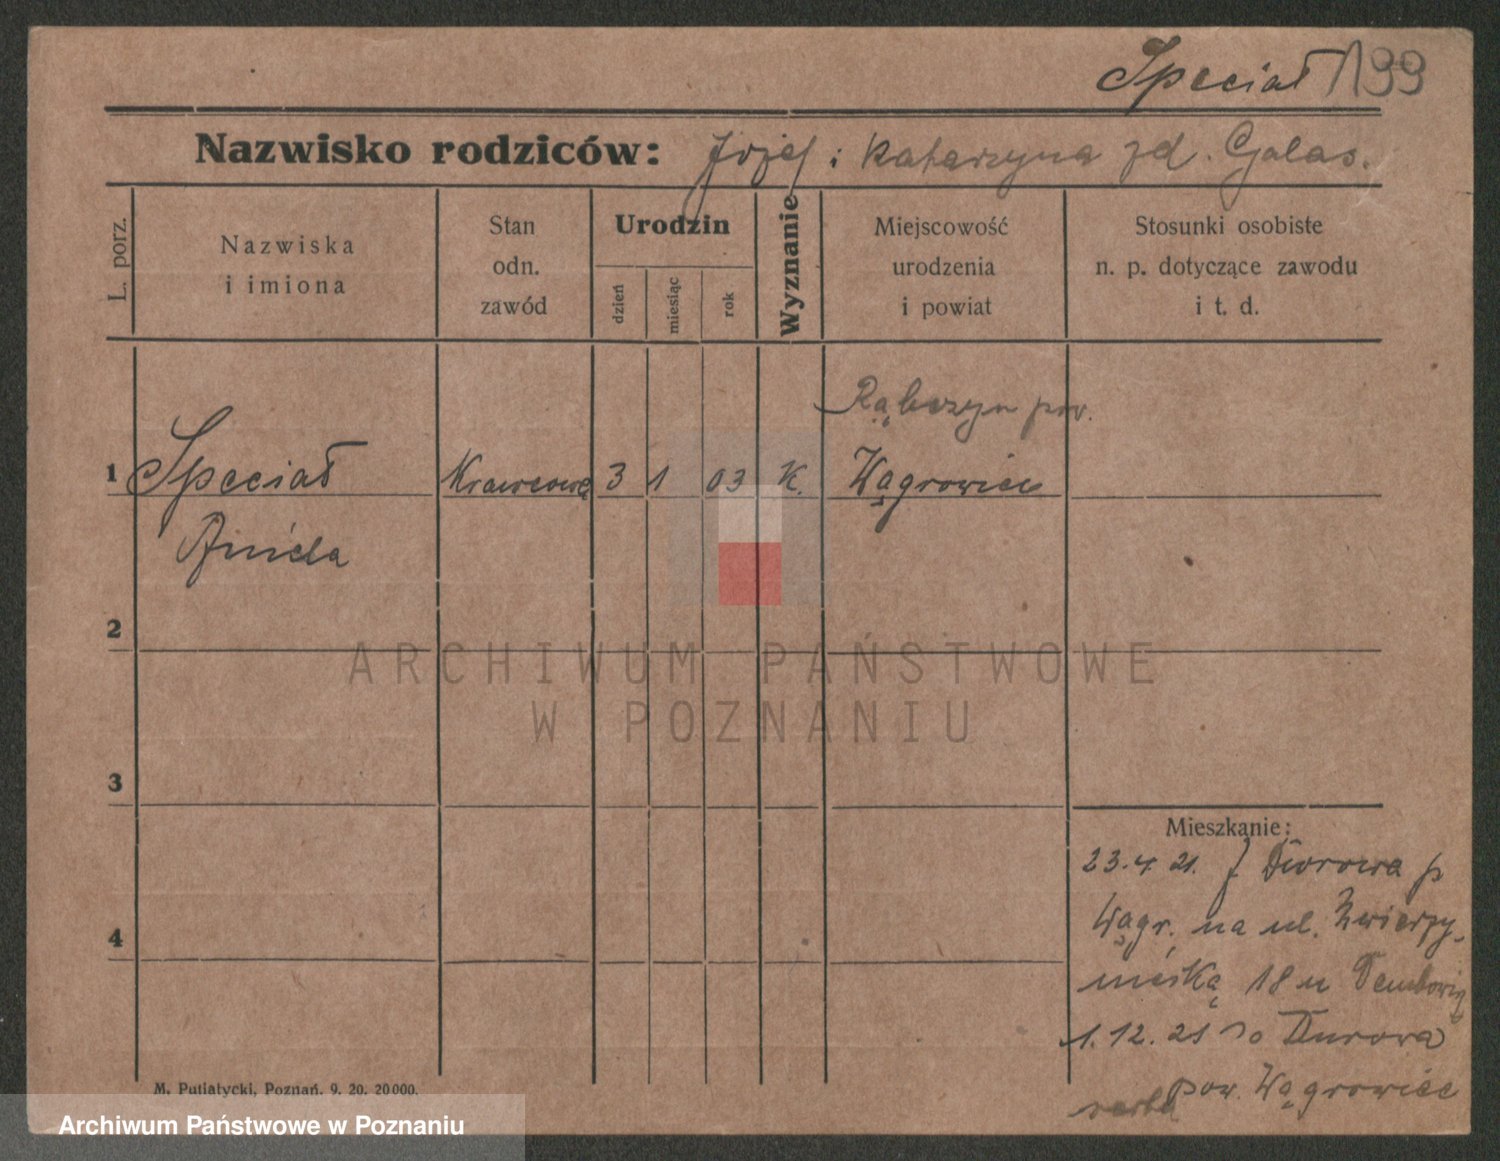 Speciał 199
Nazwisko rodziców: Józef i Katarzyna zd. Galas.
L. porz.
Nazwiska
i imiona
Stan
odn.
zawód
Urodzin
dzień
miesiąc
rok
Wyznanie
Miejscowość
urodzenia
i powiat
Stosunki osobiste
n. p. dotyczące zawodu
i t. d.
Rąbczyn pow.
1 Speciał Krawcowa 3 1 03 K. Wągrowiec
Aniela
2
ARCHIWUM PAŃSTWOWE
W POZNANIU
3
Mieszkanie:
23.4.21. Z Durowa p
Wągr. na ul. Zwierzy-
niecką 18 u
4
1.12.21 Do Durowa
pow. Wągrowiec
M. Putiatycki, Poznań. 9. 20. 20000.
Archiwum Państwowe w Poznaniu